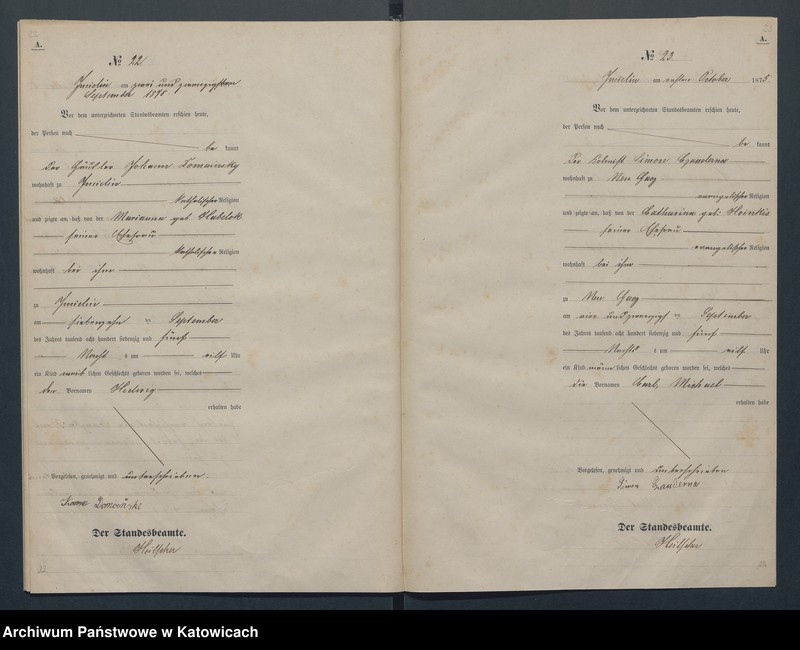 A.
№ 22
Imielin am zwei und zwanzigsten
September 1875
Vor dem unterzeichneten Standesbeamten erschien heute,
der Person nach
be kannt
Der Häusler Johann
wohnhaft zu Imielin
katholischer Religion
und zeigte an, daß von der Marianna geb.
seiner Ehefrau
katholischer Religion
wohnhaft bei ihm
zu Imielin
am siebenzehn ten September
des Jahres tausend acht hundert siebenzig und fünf
Nachts um eilf Uhr
ein Kind weib lichen Geschlechts geboren worden sei, welches
den Vornamen Hedwig
erhalten habe
Vorgelesen, genehmigt und unterschrieben.
Der Standesbeamte.
22
A.
№ 23.
Imielin am October 1875
Vor dem unterzeichneten Standesbeamten erschien heute,
der Person nach
be kannt
Der Simon
wohnhaft zu Neu Gaz
evangelischer Religion
und zeigte an, daß von der Catharina geb.
seiner Ehefrau
evangelischer Religion
wohnhaft bei ihm
zu Neu Gaz
am vier und zwanzigst en September
des Jahres tausend acht hundert siebenzig und fünf
Nachts um eilf Uhr
ein Kind männ lichen Geschlechts geboren worden sei, welches
die Vornamen Carl, Michael
erhalten habe
Vorgelesen, genehmigt und unterschrieben
Der Standesbeamte.
Archiwum Państwowe w Katowicach